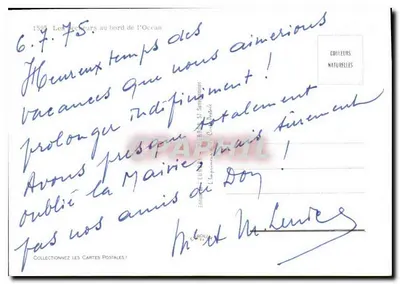 6.7.75.
au bord de l'Océan
Heureux temps des
vacances que nous aimerions
prolonger indéfiniment !
Avons presque totalement
oublié la Mairie, mais sûrement
pas nos amis de Don !
COULEURS
NATURELLES
COLLECTIONNEZ LES CARTES POSTALES !